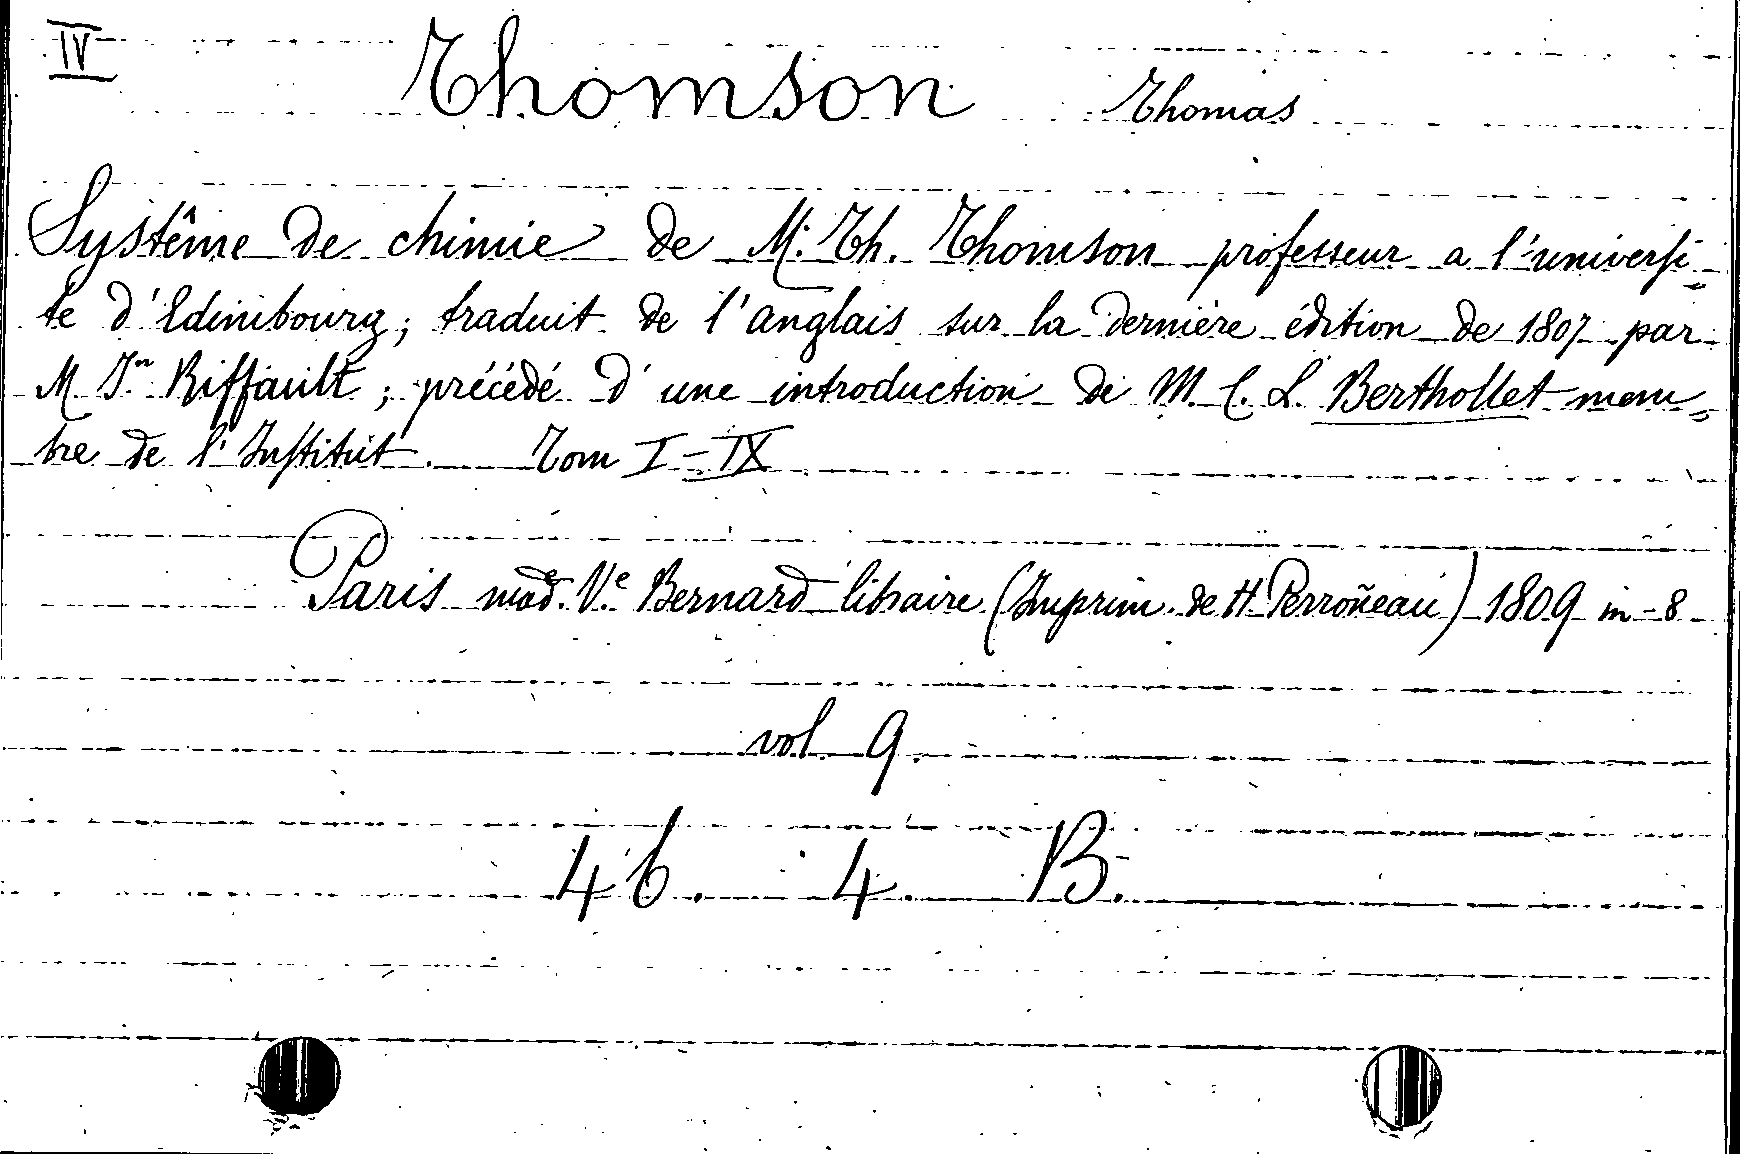 IV
Thomson Thomas
Systême de chimie de M. Th. Thomson professeur a l'universi-
te d'Edimbourg; traduit de l'anglais sur la dernière édition de 1807 par
M Jn Riffault; précédé d'une introduction de M. C. L. Berthollet mem-
bre de l'Institut. Tom I-IX
Paris mad. Ve Bernard libraire (Imprim. de H Perroñeau) 1809 in-8
vol 9.
46. 4. B.